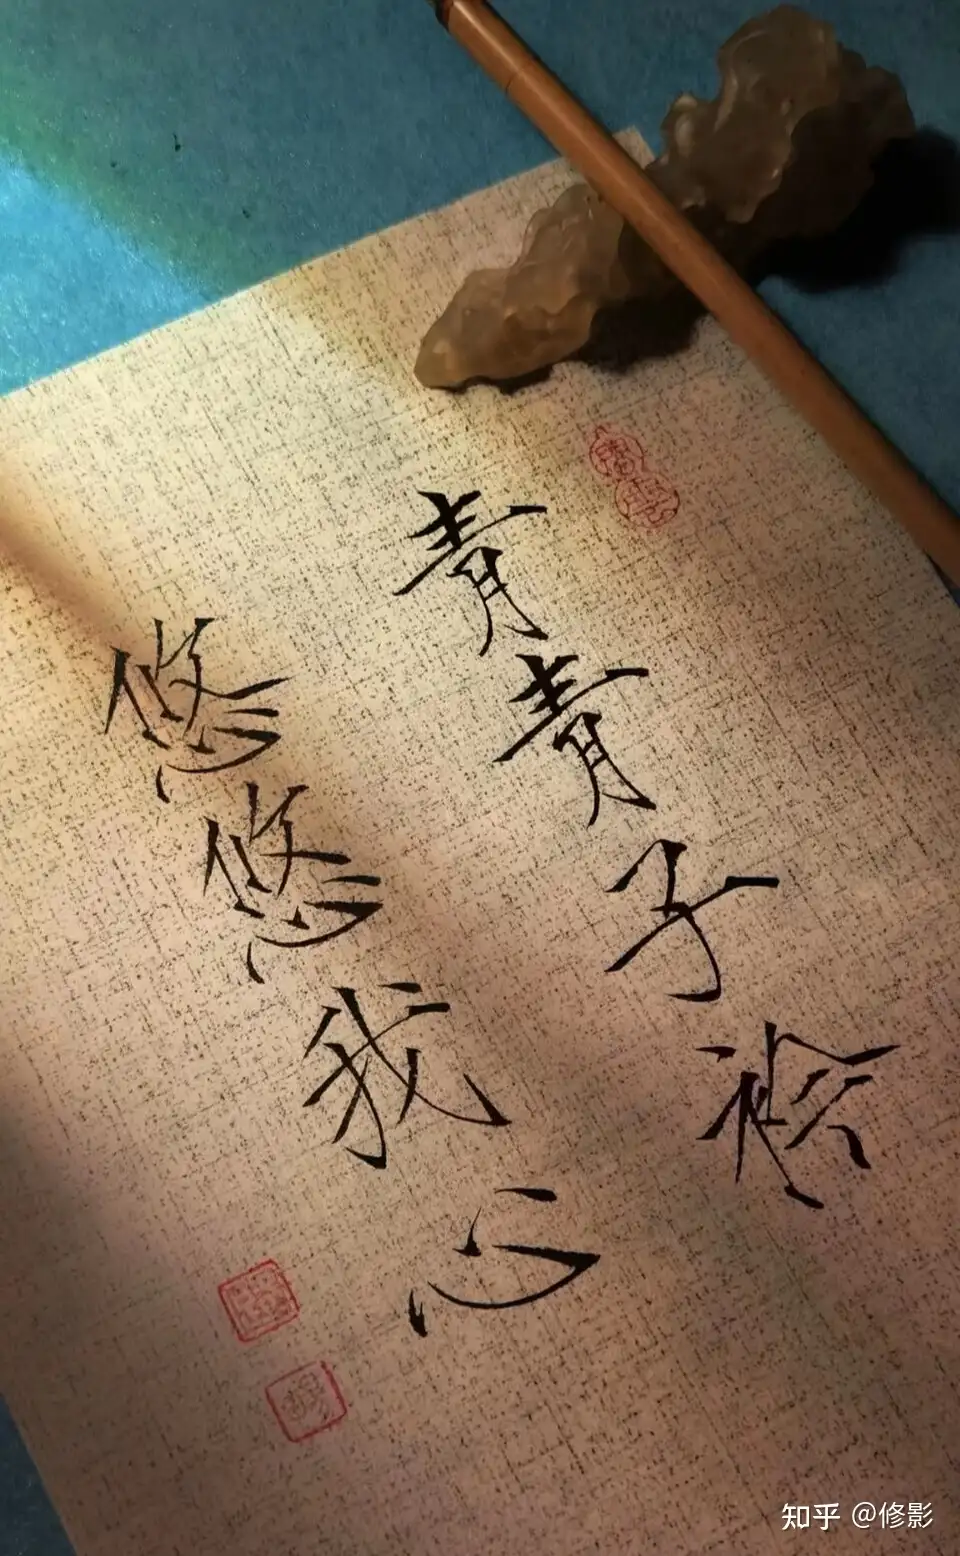 青青子衿
悠悠我心
知乎 @修影